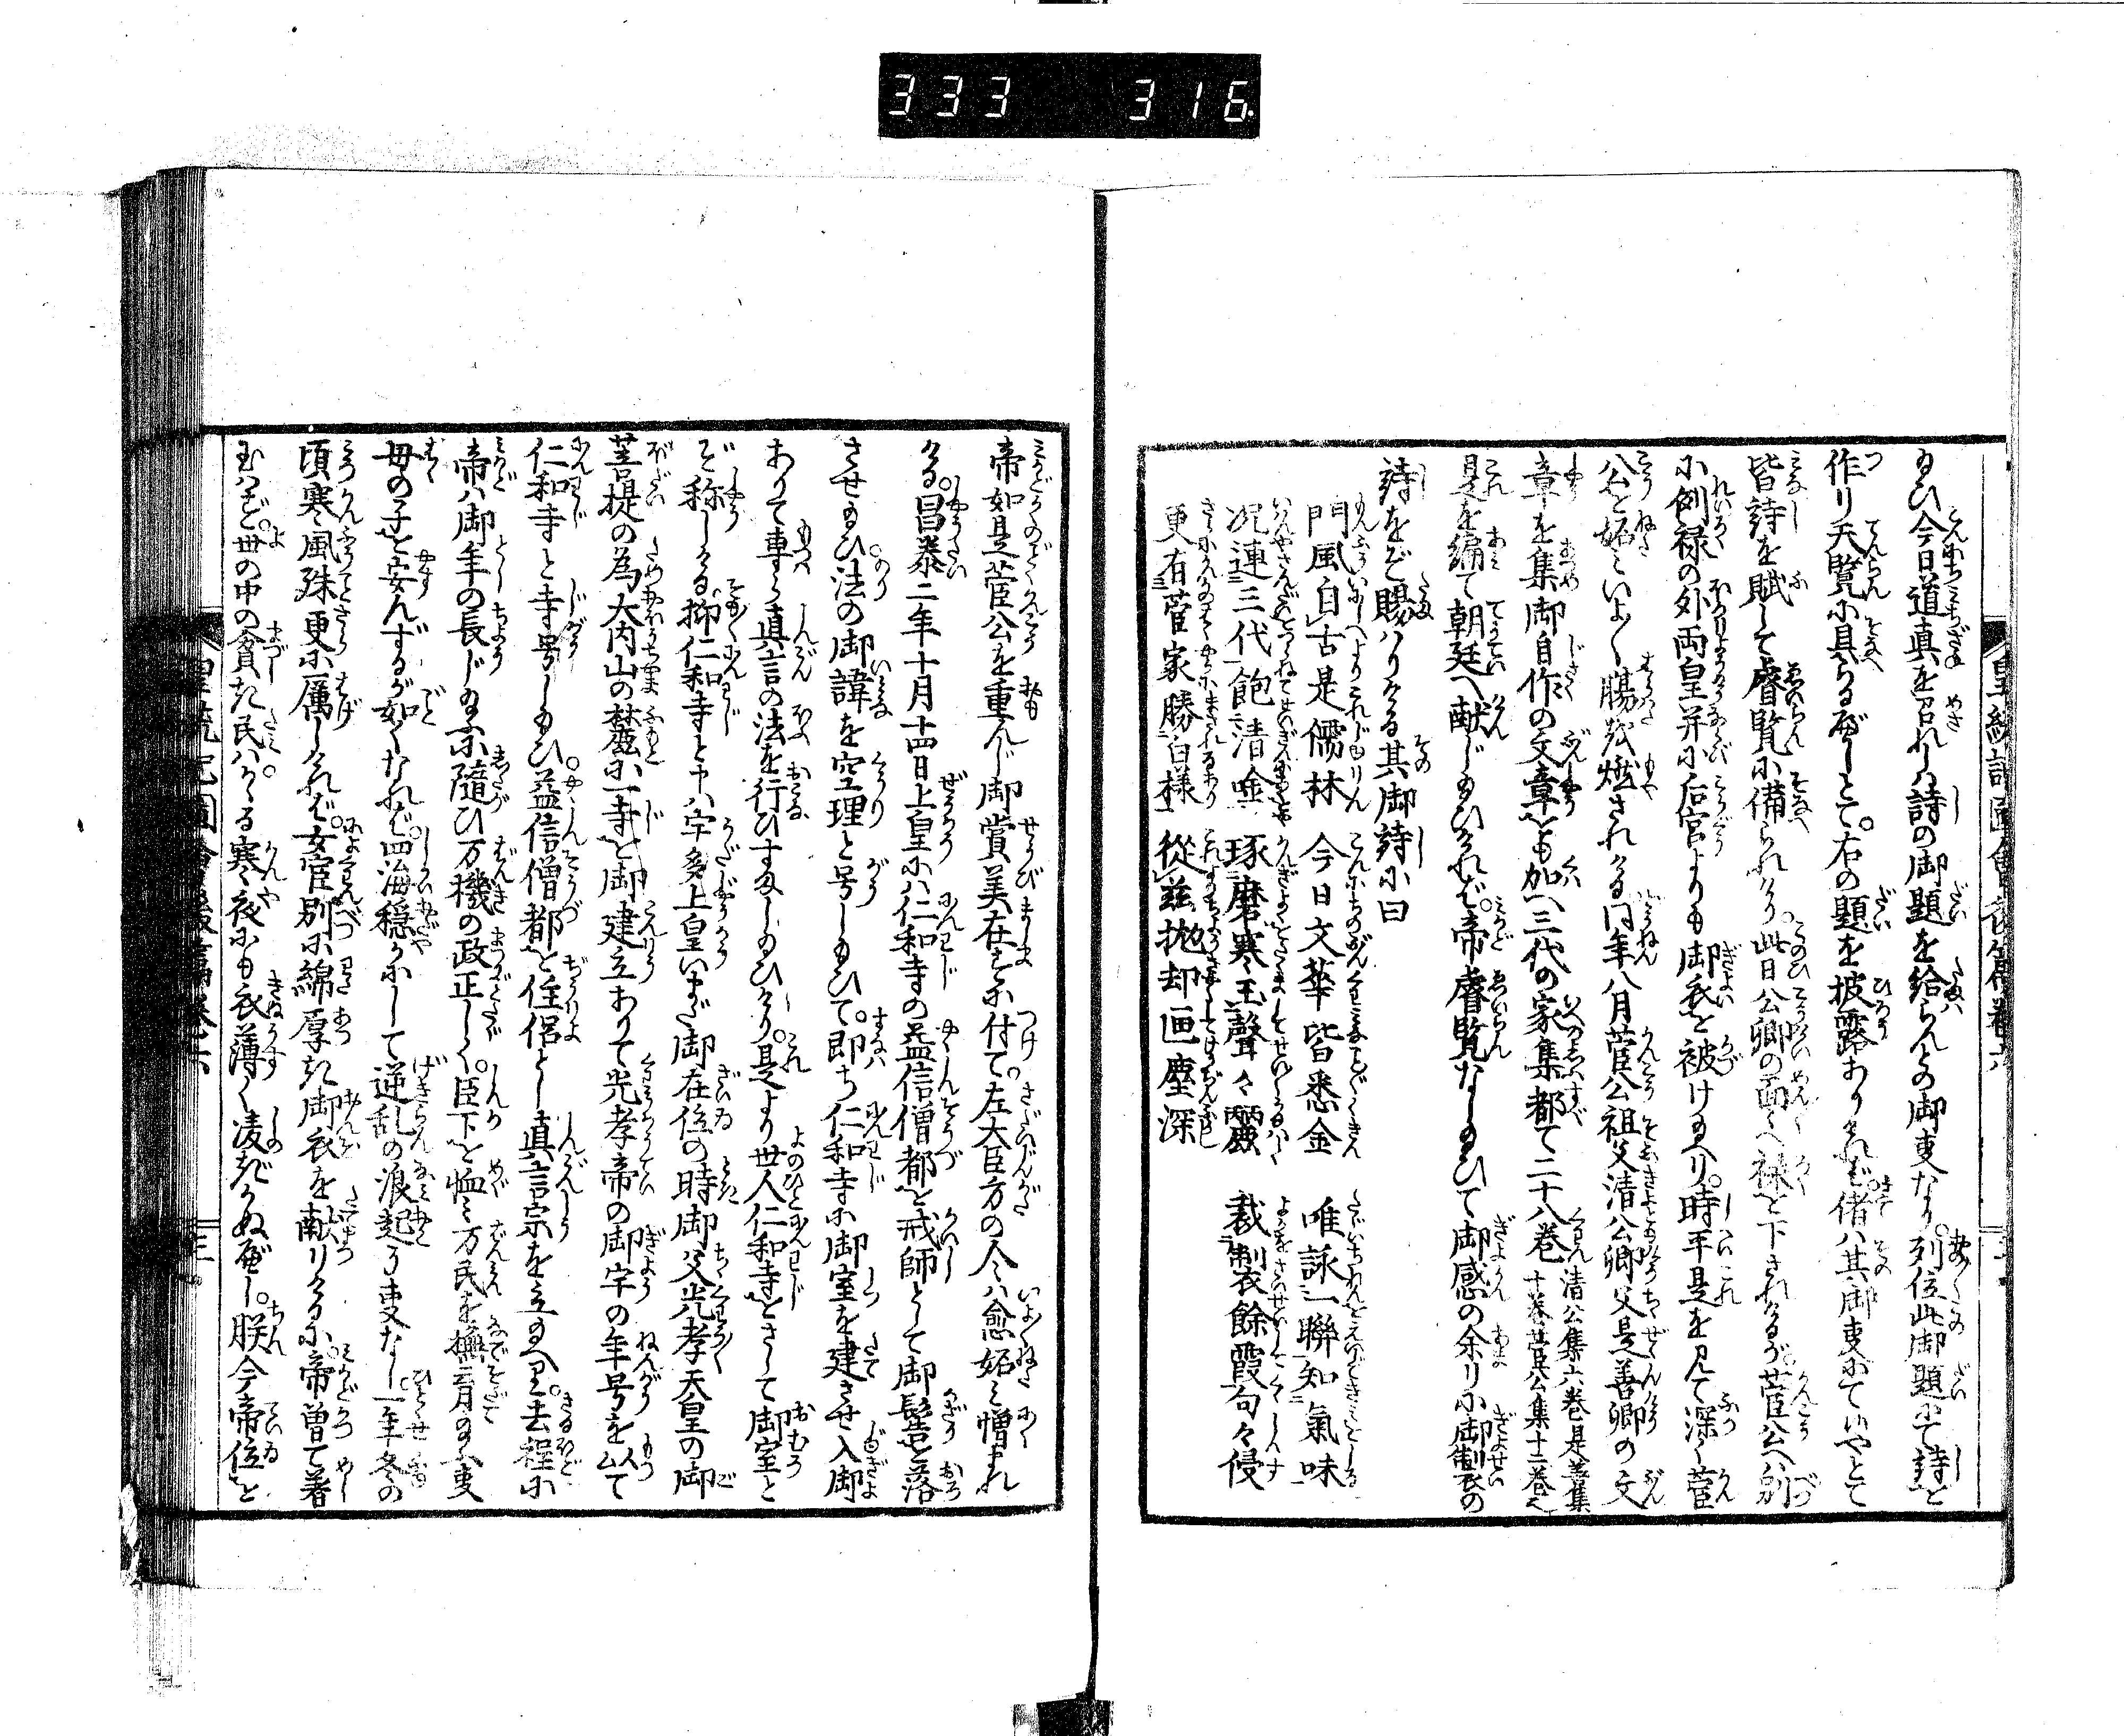 333 316
給ひ今日道真を召れしハ詩の御題を給らんとの御叓なり。列位此御題にて詩を
作り天覧に具らるべしとて。右の題を披露ありけれバ。偖ハ其御叓にていやとて
皆詩を賦して睿覧に備られけり。此日公卿の面々へ禄を下されけるが。菅公へハ別
に例禄の外両皇并に后宮よりも御衣を被け給へり。時平是を見て深く菅
公を妬ミいよ〱腸を燃されける同年八月菅公祖父清公卿父是善卿の文
章を集御自作の文章をも加へ三代の家集都て二十八巻清公集六巻是善集十巻菅公集十二巻也
是を編て朝廷へ献じ給ひけれバ。帝睿覧なし給ひて御感の余りに御製の
詩をぞ賜ハりける其御詩に曰
門風自古是儒林 今日文華皆悉金 唯詠一聯知氣味
况連三代飽清唫 琢磨寒玉聲々麗 裁制餘霞句々侵
更有菅家勝白様 從茲抛却匣塵深
帝如是菅公を重んじ御賞美在すに付て。左大臣方の人々ハ愈妬ミ憎まれ
ける。昌泰二年十月十四日上皇にハ仁和寺の益信僧都を戒師として御髻を落
させ給ひ。法の御諱を空理と号し給ひて。即ち仁和寺に御室を建させ入御
ありて専ら真言の法を行ひすまし給ひけり。是より世人仁和寺をさして御室と
ぞ称しける。抑仁和寺と申ハ宇多上皇いまだ御在位の時御父光孝天皇の御
菩提の為大内山の麓に一寺を御建立ありて光孝帝の御宇の年号を以て
仁和寺と寺号し給ひ。益信僧都を住侶とし真言宗を立給へり。去程に
帝ハ御年の長じ給ふに隨ひ万機の政正しく。臣下を恤ミ万民を撫育給ふ叓
母の子を安んずるが如くなれバ。四海穏かにして逆乱の浪起る叓なし。一年冬の
頃寒風殊更に厲しけれバ。女官別に綿厚き御衣を献りけるに。帝曽て着
玉ハず。世の中の貧しき民ハ。かゝる寒夜にも衣薄く凌ぎかぬべし。朕今帝位を